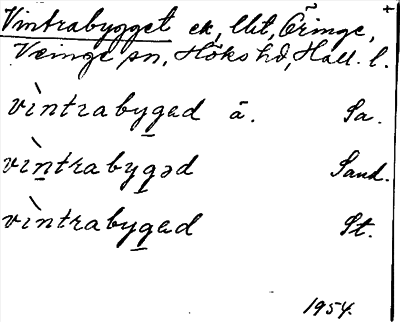 Vintrabygget ek, llit, Öringe, +
Veinge sn, Höks hd, Hall. l.
vìntrabygəd ā. Sa.
vìntrabygəd Sand.
vìntrabygəd St.
1954.